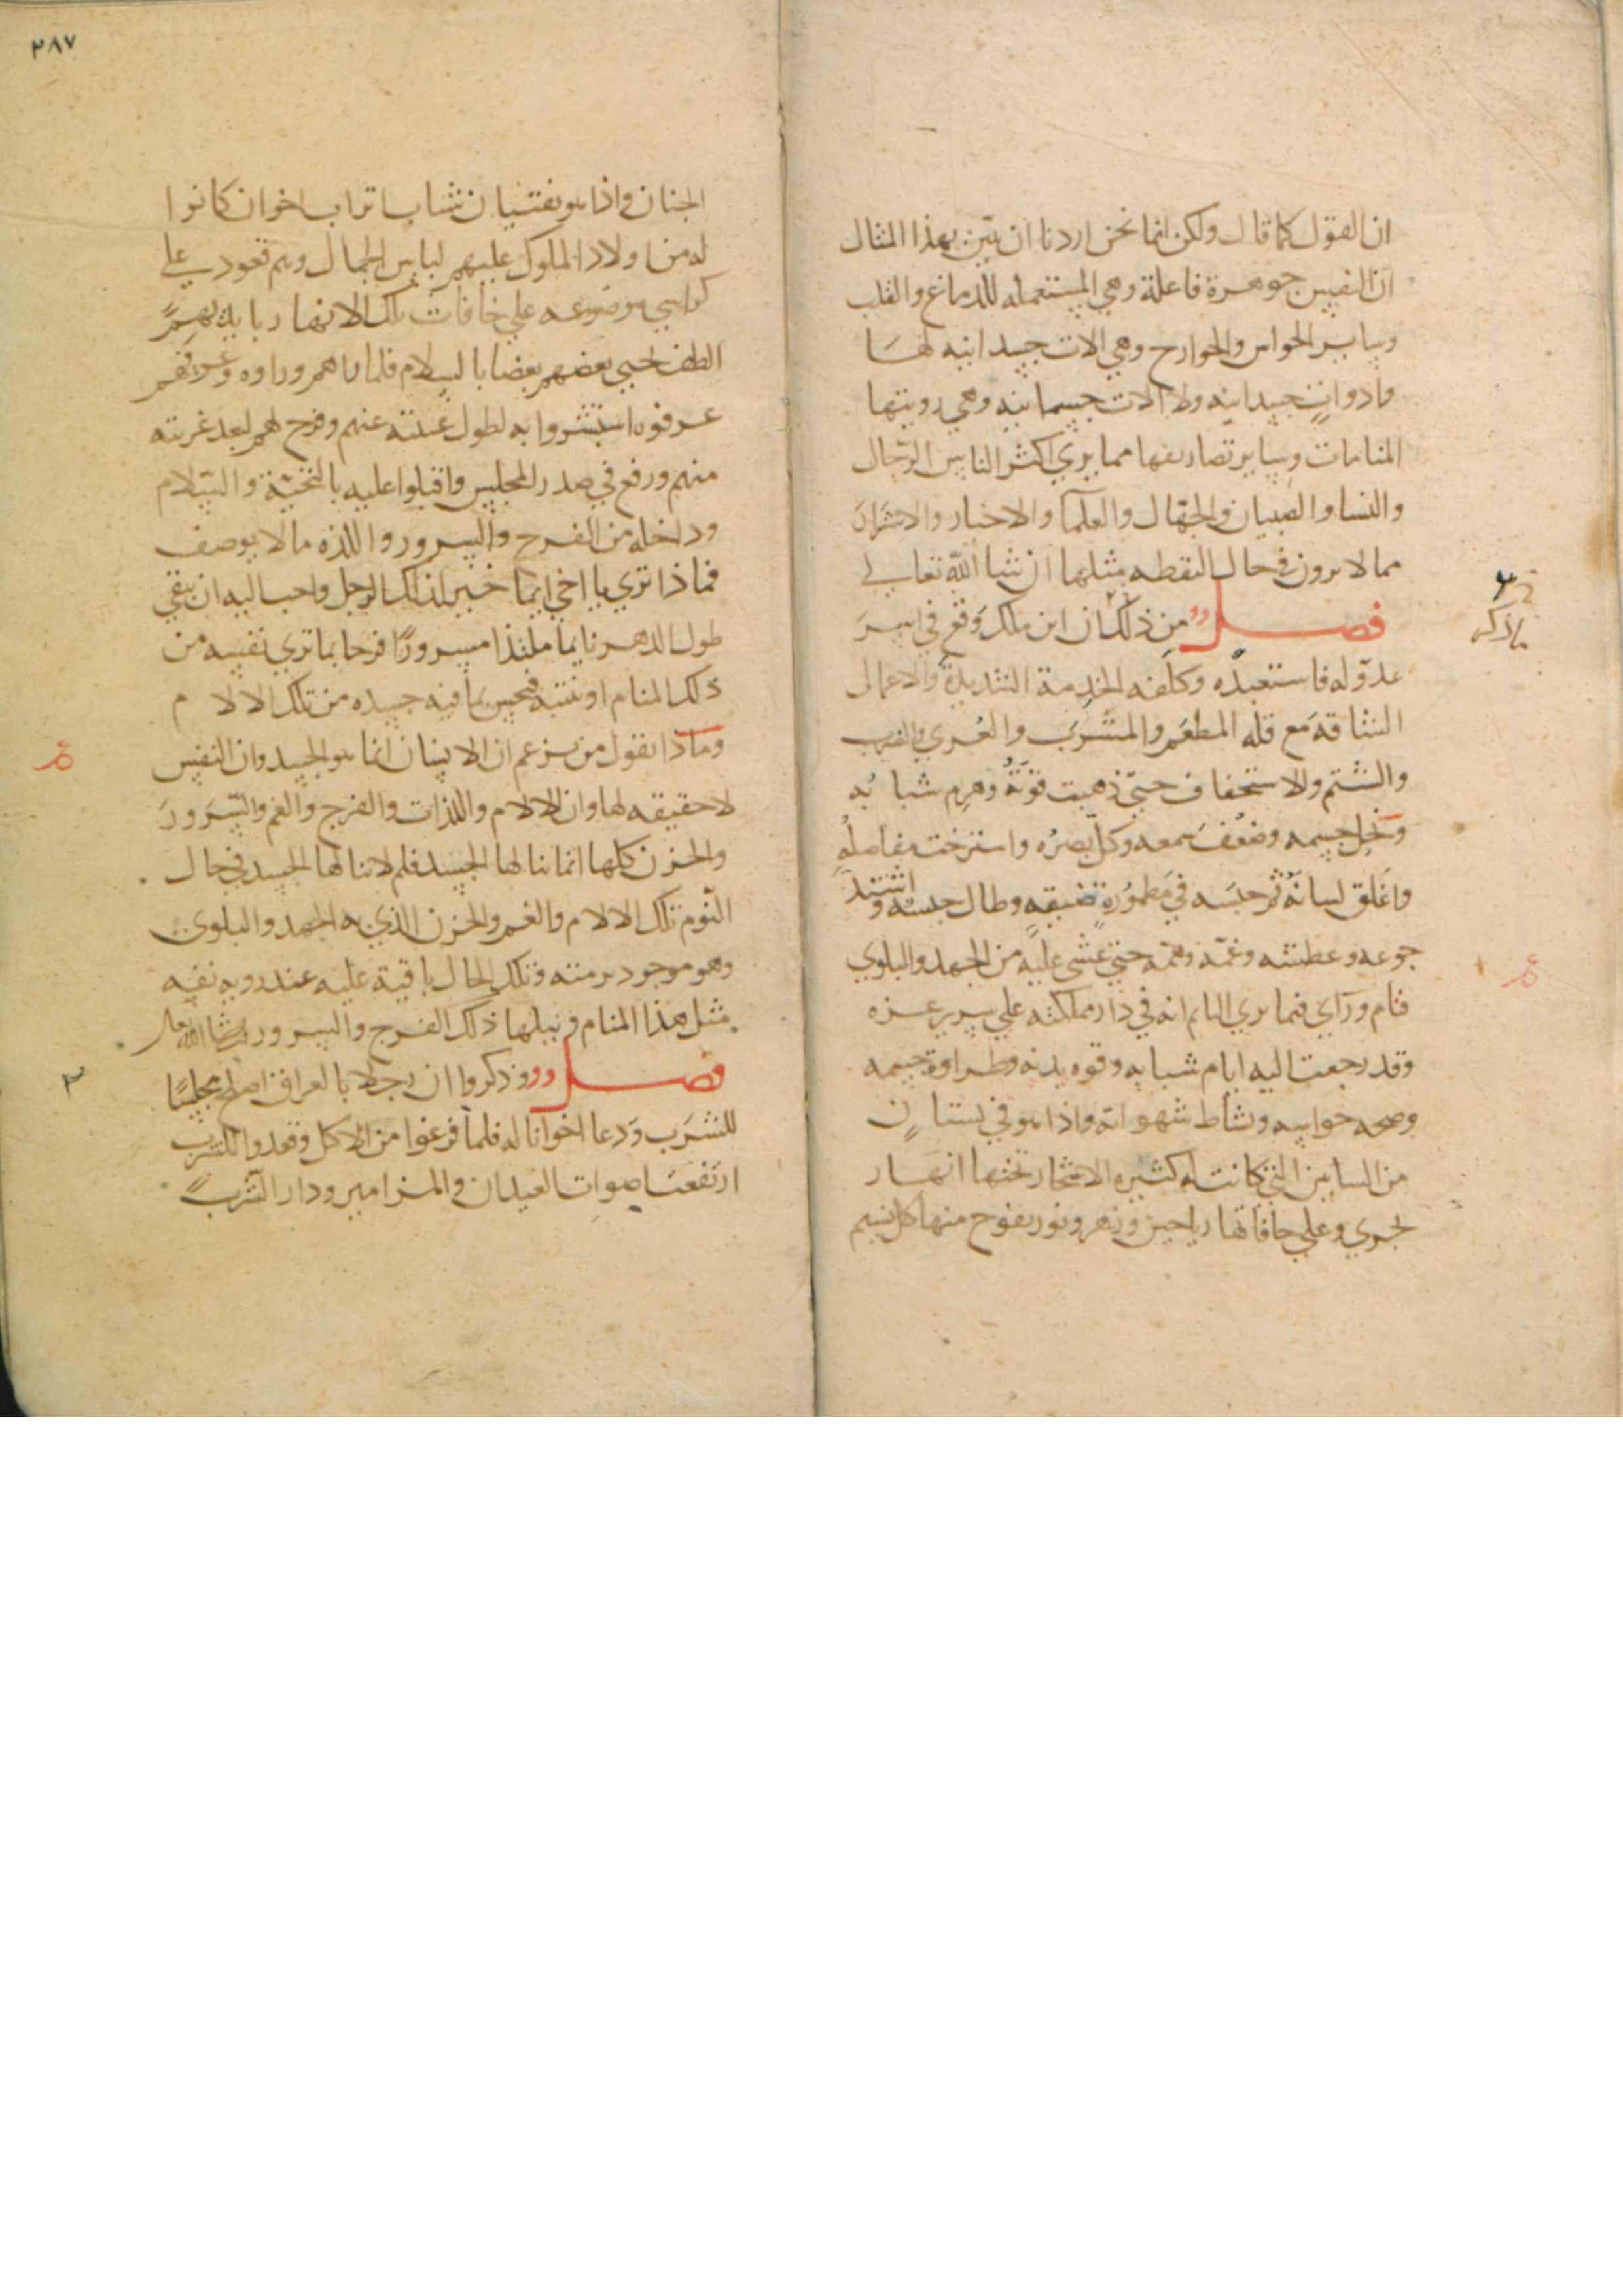 ان القول كما قال ولكن انما نحن اردنا ان نبين بهذا المثال
ان النفس جوهرة فاعلة وهي المستعمله للدماغ والقلب
وساير الحواس والجوارح وهي الات جسدانيه لها
وادوات جسدانيه ولا الات جسمانيه وهي رويتها
المنامات وساير تصاريفها مما يري اكثر الناس الرجال
والنسا والصبيان والجهال والعلما والاخيار والاشرار
مما لا يرون في حال اليقظه مثلها ان شا الله تعالي
فصل من ذلك ان ابن ملك وقع في اسر
عدو له فاستعبده وكلفه الخدمة الشديدة والاعمال
الشاقة مع قله المطعم والمشرب والعري والضرب
والشتم والاستخفاف حتي ذهبت قوته وهرم شبابه
ونحل جسمه وضعف سمعه وكل بصره واسترخت مفاصله
واغلق لسانه ثم حبسه في مطمورة ضيقه وطال حبسه واشتد
جوعه وعطشه وغمه وهمه حتي غشي عليه من الجهد والبلوي
فنام وراي فيما يري النايم انه في دار مملكته علي سرير عزه
وقد رجعت اليه ايام شبابه وقوه بدنه وطراوة جسمه
وصحه حواسه ونشاط شهواته واذا هو في بستان
من البساتين التي كانت له كثيره الاشجار تحتها انهار
تجري وعلي حافاتها رياحين وزهر ونور يفوح منها كل نسيم
٣٨٧
الجنان واذا هو بفتيان شباب اتراب اخوان كانوا
له من اولاد الملوك عليهم لباس الجمال وهم قعود علي
كراسي موضوعه علي حافات تلك الانهار بايديهم
الطف يحيي بعضهم بعضا بالسلام فلما راهم وراوه وعرفهم
عرفوه استبشروا به لطول غيبته عنهم وفرح بهم لبعد غربته
منهم ورفع في صدر المجلس واقبلوا عليه بالتحية والسلام
وداخله من الفرح والسرور واللذه ما لا يوصف
فماذا تري يا اخي ايما خير لذلك الرجل واحب اليه ان يبقي
طول الدهر نايما ملتذا مسرورا فرحا بما تري نفسه من
ذلك المنام او ينتبه فيحس بما فيه جسده من تلك الالام
وماذا نقول من يزعم ان الانسان انما هو الجسد وان النفس
لا حقيقه لها وان الالام واللذات والفرح والغم والسرور
والحزن كلها انما ينالها الجسد فلم لا ينالها الجسد في حال
النوم تلك الالام والغم والحزن الذي به الجهد والبلوي
وهو موجود برمته وتلك الحال باقية عليه عند رويه نفسه
مثل هذا المنام ونيلها ذلك الفرح والسرور ان شا الله تعالي
فصل وذكروا ان رجلا بالعراق اصلح مجلسا
للشرب ودعا اخوانا له فلما فرغوا من الاكل وقعدوا للشرب
ارتفعت اصوات العيدان والمزامير ودار الشرب